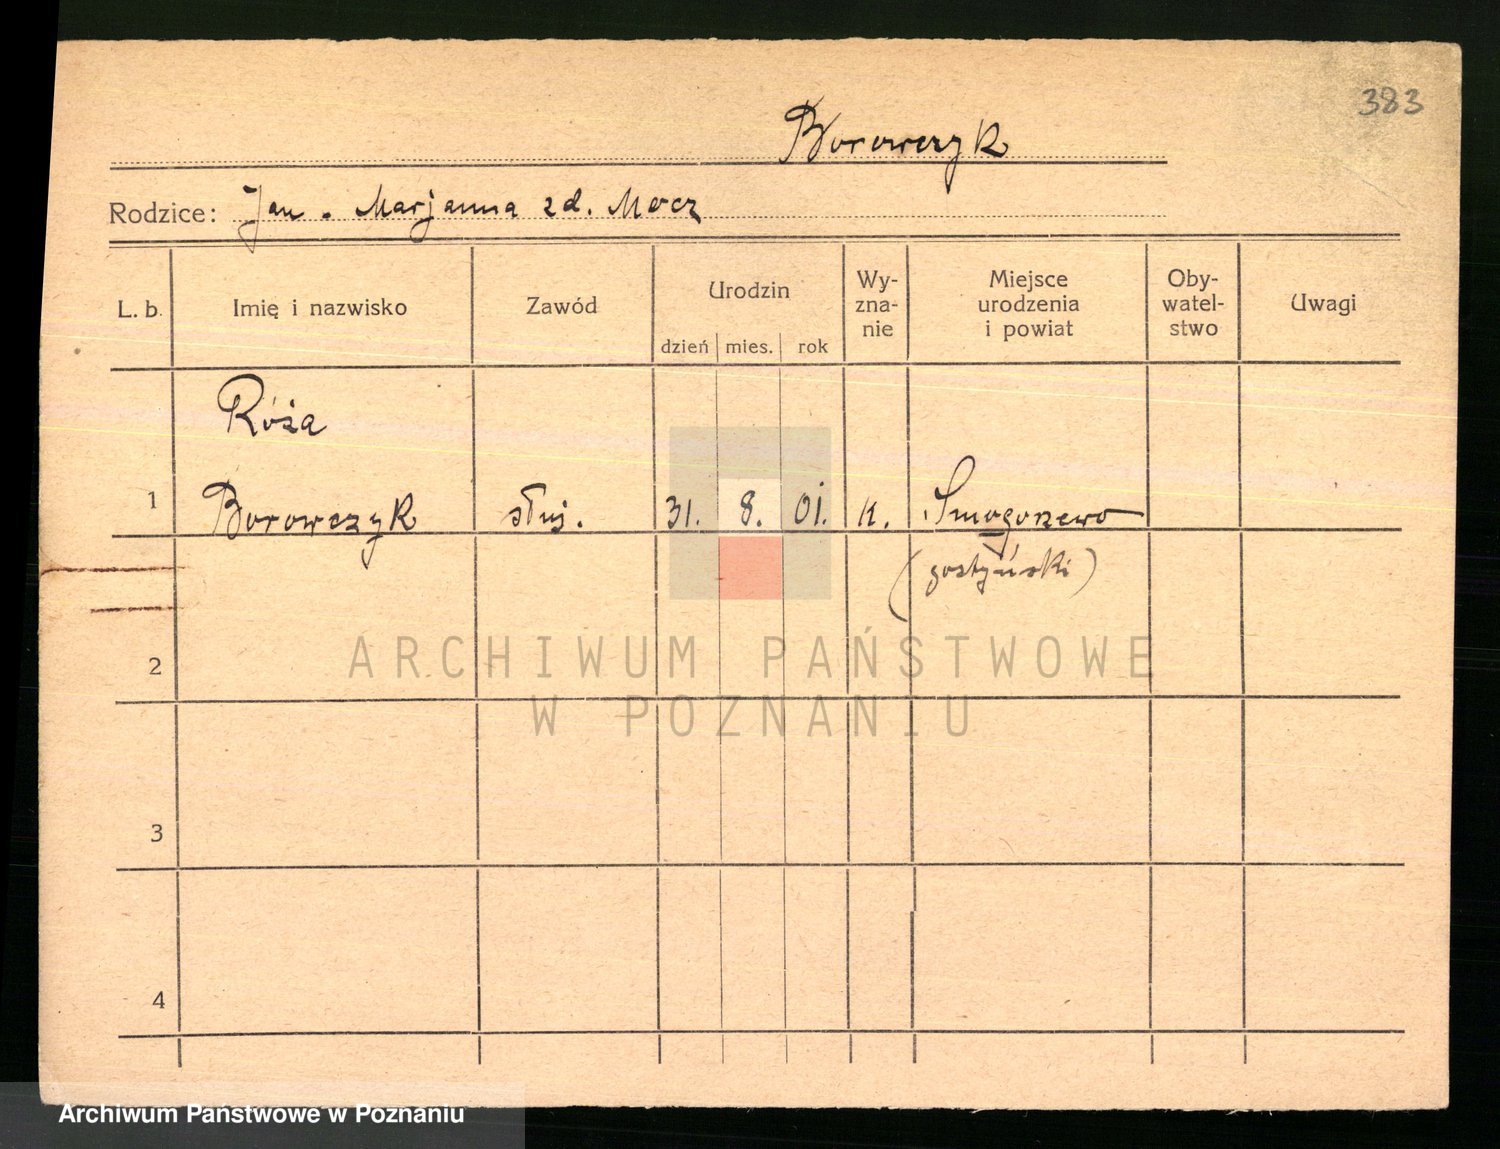 383
Borowczyk
Rodzice: Jan . Marjanna zd. Mocz
L. b. Imię i nazwisko Zawód Urodzin dzień mies. rok Wy-zna-nie Miejsce urodzenia i powiat Oby-watel-stwo Uwagi
Róża
1 Borowczyk służ. 31. 8. 01. k. Smogorzewo
(gostyński)
2
ARCHIWUM PAŃSTWOWE
W POZNANIU
3
4
Archiwum Państwowe w Poznaniu